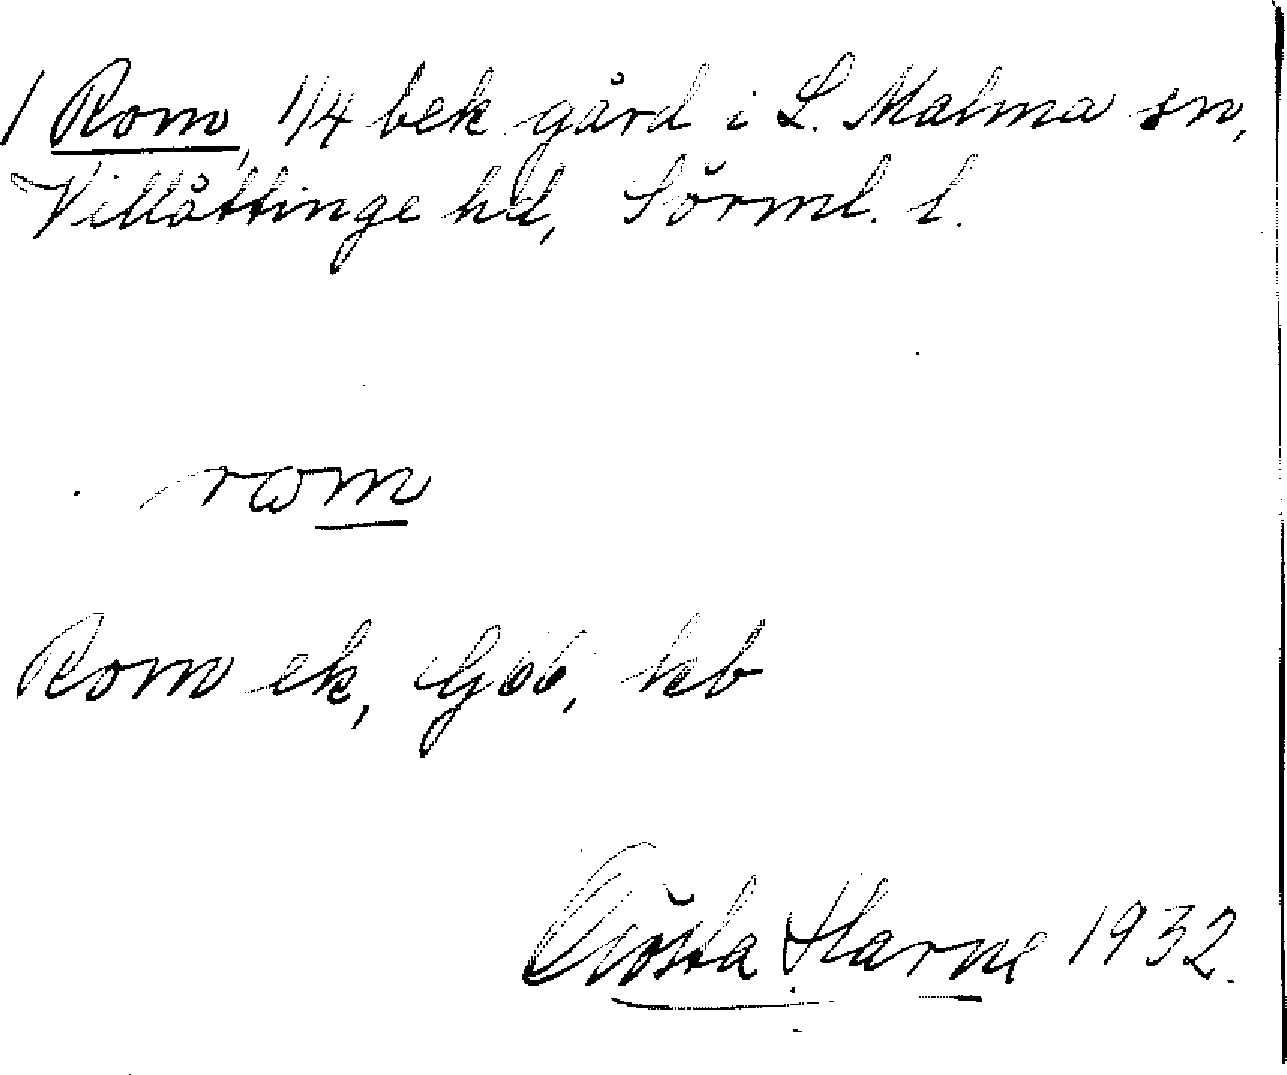 1 Rom, 1/4 bek gård i L. Malma sn,
Villåttinge hd, Sörml. l.
rωm
Rom ek, G66, kb
Gösta Harne 1932.